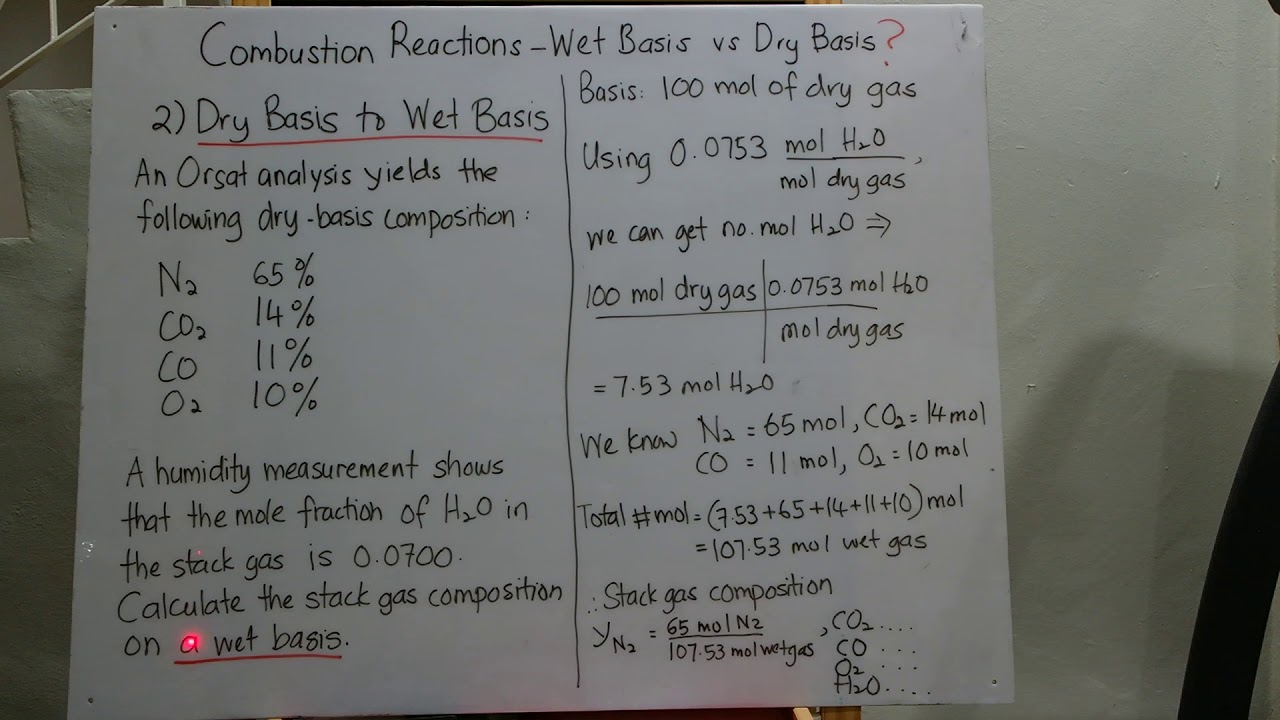 Combustion Reactions – Wet Basis vs Dry Basis?
2) Dry Basis to Wet Basis
An Orsat analysis yields the
following dry-basis composition:
N₂ 65%
CO₂ 14%
CO 11%
O₂ 10%
A humidity measurement shows
that the mole fraction of H₂O in
the stack gas is 0.0700.
Calculate the stack gas composition
on a wet basis.
Basis: 100 mol of dry gas
Using 0.0753 mol H₂O
mol dry gas,
we can get no. mol H₂O ⇒
100 mol dry gas | 0.0753 mol H₂O
mol dry gas
= 7.53 mol H₂O
We know N₂ = 65 mol, CO₂ = 14 mol
CO = 11 mol, O₂ = 10 mol
Total #mol = (7.53+65+14+11+10) mol
= 107.53 mol wet gas
∴ Stack gas composition
y N₂ = 65 mol N₂ , CO₂ ....
107.53 mol wet gas CO ...
O₂ ...
H₂O ....